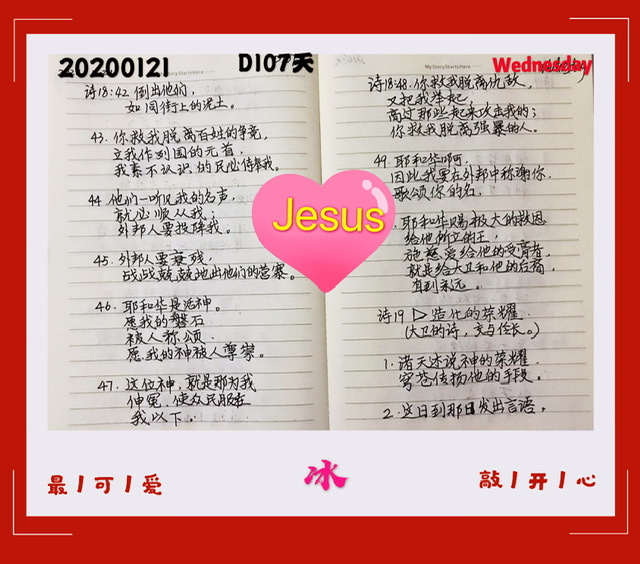 20200121
D107天
Wednesday
My Story Starts Here
诗18:42 倒出他们,
如同街上的泥土。
43. 你救我脱离百姓的争竞,
立我作列国的元首,
我素不认识的民必侍奉我。
44. 他们一听见我的名声,
就必顺从我;
外邦人要投降我。
45. 外邦人要衰残,
战战兢兢地出他们的营寨。
46. 耶和华是活神。
愿我的磐石
被人称颂
愿我的神被人尊崇。
47. 这位神,就是那为我
伸冤,使众民服在
我以下.
My Story Starts Here
诗18:48. 你救我脱离仇敌,
又把我举起,
高过那些起来攻击我的;
你救我脱离强暴的人。
49. 耶和华啊,
因此我要在外邦中称谢你,
歌颂你的名.
耶和华赐极大的救恩
给他所立的王,
施慈爱给他的受膏者,
就是给大卫和他的后裔,
直到永远。
诗19 ▷ 造化的荣耀.
(大卫的诗,交与伶长。)
1. 诸天述说神的荣耀.
穹苍传扬他的手段。
2. 这日到那日发出言语。
Jesus
最丨可丨爱
冰
敲丨开丨心